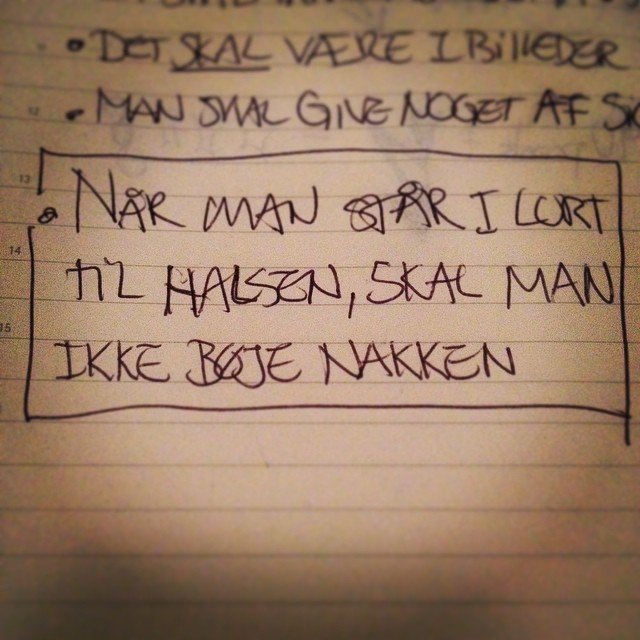 • DET SKAL VÆRE I BILLEDER
• MAN SKAL GIVE NOGET AF
13
• NÅR MAN STÅR I LORT
14
TIL HALSEN, SKAL MAN
15
IKKE BØJE NAKKEN